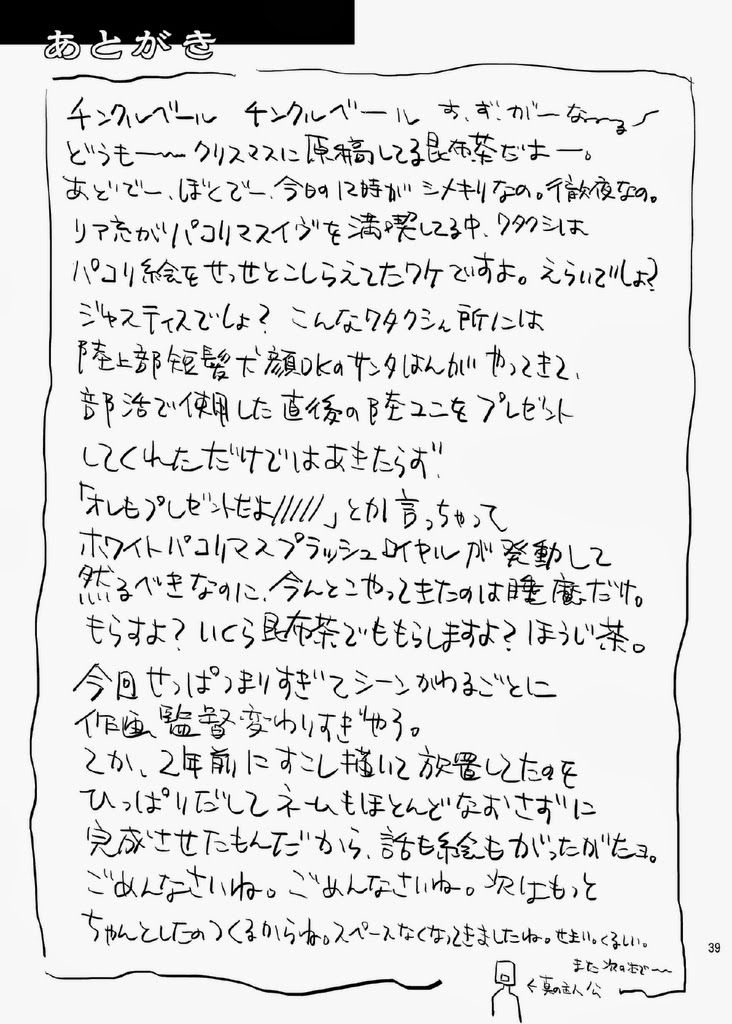 あとがき
チンクルベール チンクルベール す、ず、がーな〜〜る〜
どうも―〜〜クリスマスに原稿してる昆布茶だはー。
あどでー、ぼくでー、今日の12時がシメキリなの。行散夜なの。
リア充がパコリマスイヴを満喫してる中、ワタクシは
パコリ絵をせっせとこしらえてたワケですよ。えらいでしょ?
ジャスティスでしょ? こんなワタクシん所には
陸上部短髪犬顔OKのサンタはんがやってきて、
部活で使用した直後の陸ユニをプレゼント
してくれただけではあきたらず、
「オレもプレゼントだよ/////」とか言っちゃって
ホワイトパコリマスプラッシュロイヤルが発動して
然るべきなのに、今んとこやってきたのは睡魔だけ。
もらすよ? いくら昆布茶でももらしますよ? ほうじ茶。
今回せっぱつまりすぎてシーンがわるごとに
作画監督変わりすぎやろ。
てか、2年前にすこし描いて放置してたのを
ひっぱりだしてネームもほとんどなおさずに
完成させたもんだから、話も絵もがったがたョ。
ごめんなさいね。ごめんなさいね。次はもっと
ちゃんとしたのつくるからね。スペースなくなってきましたね。せまい。くるしい。
また次の本で〜〜
←真の主人公
39